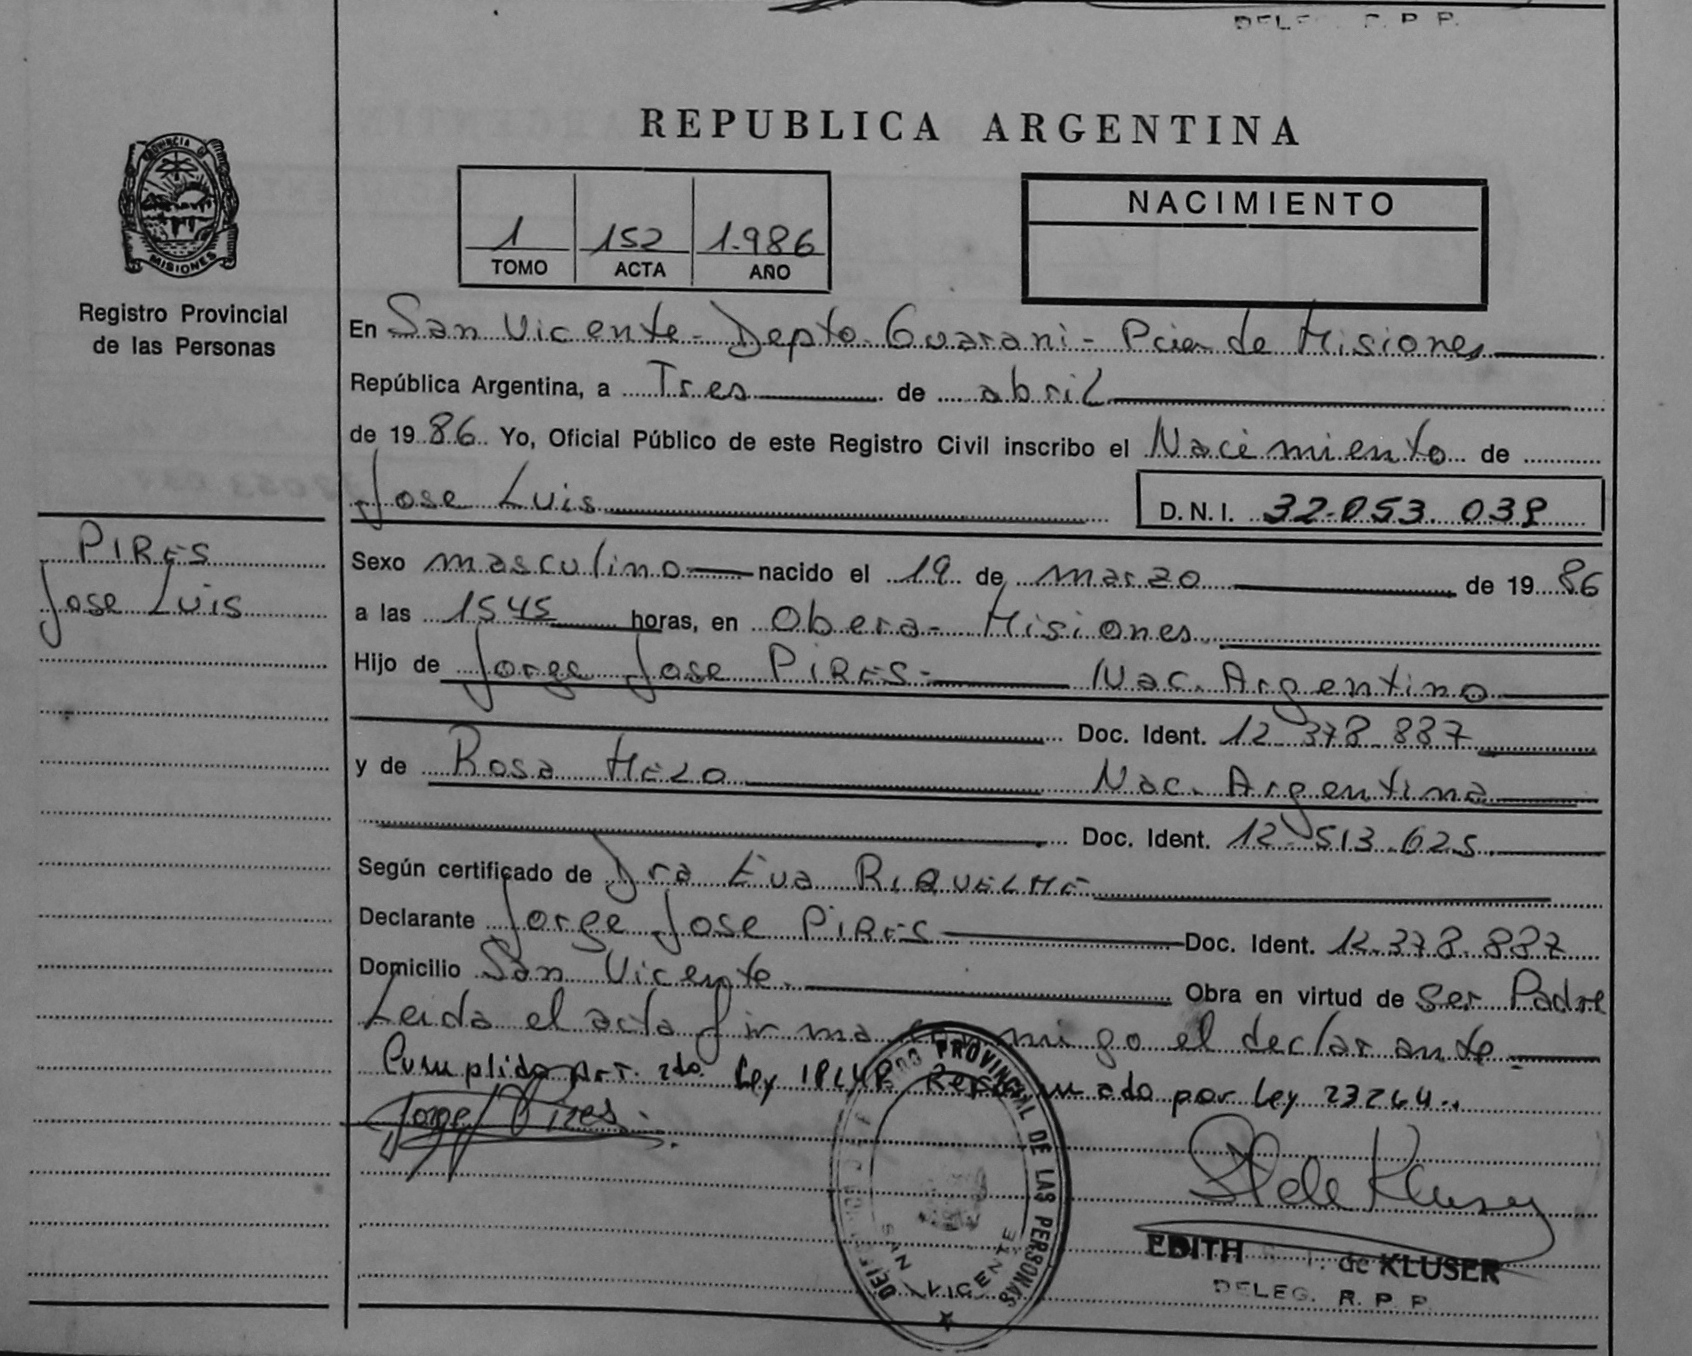 DELEG. R. P. P.
REPUBLICA ARGENTINA
PROVINCIA DE
MISIONES
Registro Provincial
de las Personas
1 152 1.986
TOMO ACTA AÑO
NACIMIENTO
En San Vicente - Depto. Guarani - Pcia de Misiones
República Argentina, a Tres de abril
de 19 86 Yo, Oficial Público de este Registro Civil inscribo el Nacimiento de
Jose Luis D.N.I. 32.053.039
PIRES
Jose Luis
Sexo masculino nacido el 19 de marzo de 19 86
a las 1545 horas, en Obera - Misiones.
Hijo de Jorge Jose PIRES - Nac. Argentino
Doc. Ident. 12.378.887
y de Rosa MELO Nac. Argentina
Doc. Ident. 12.513.625.
Según certificado de Dra Eva RIQUELME
Declarante Jorge Jose PIRES Doc. Ident. 12.378.887
Domicilio San Vicente. Obra en virtud de Ser Padre
Leida el acta firma conmigo el declarante.
Cumplido Art. 2do. Ley Reformado por Ley 23264..
Jorge J Pires.
PROVINCIAL DE LAS PERSONAS
SAN VICENTE
E de Kluser
EDITH de KLUSER
DELEG. R. P. P.